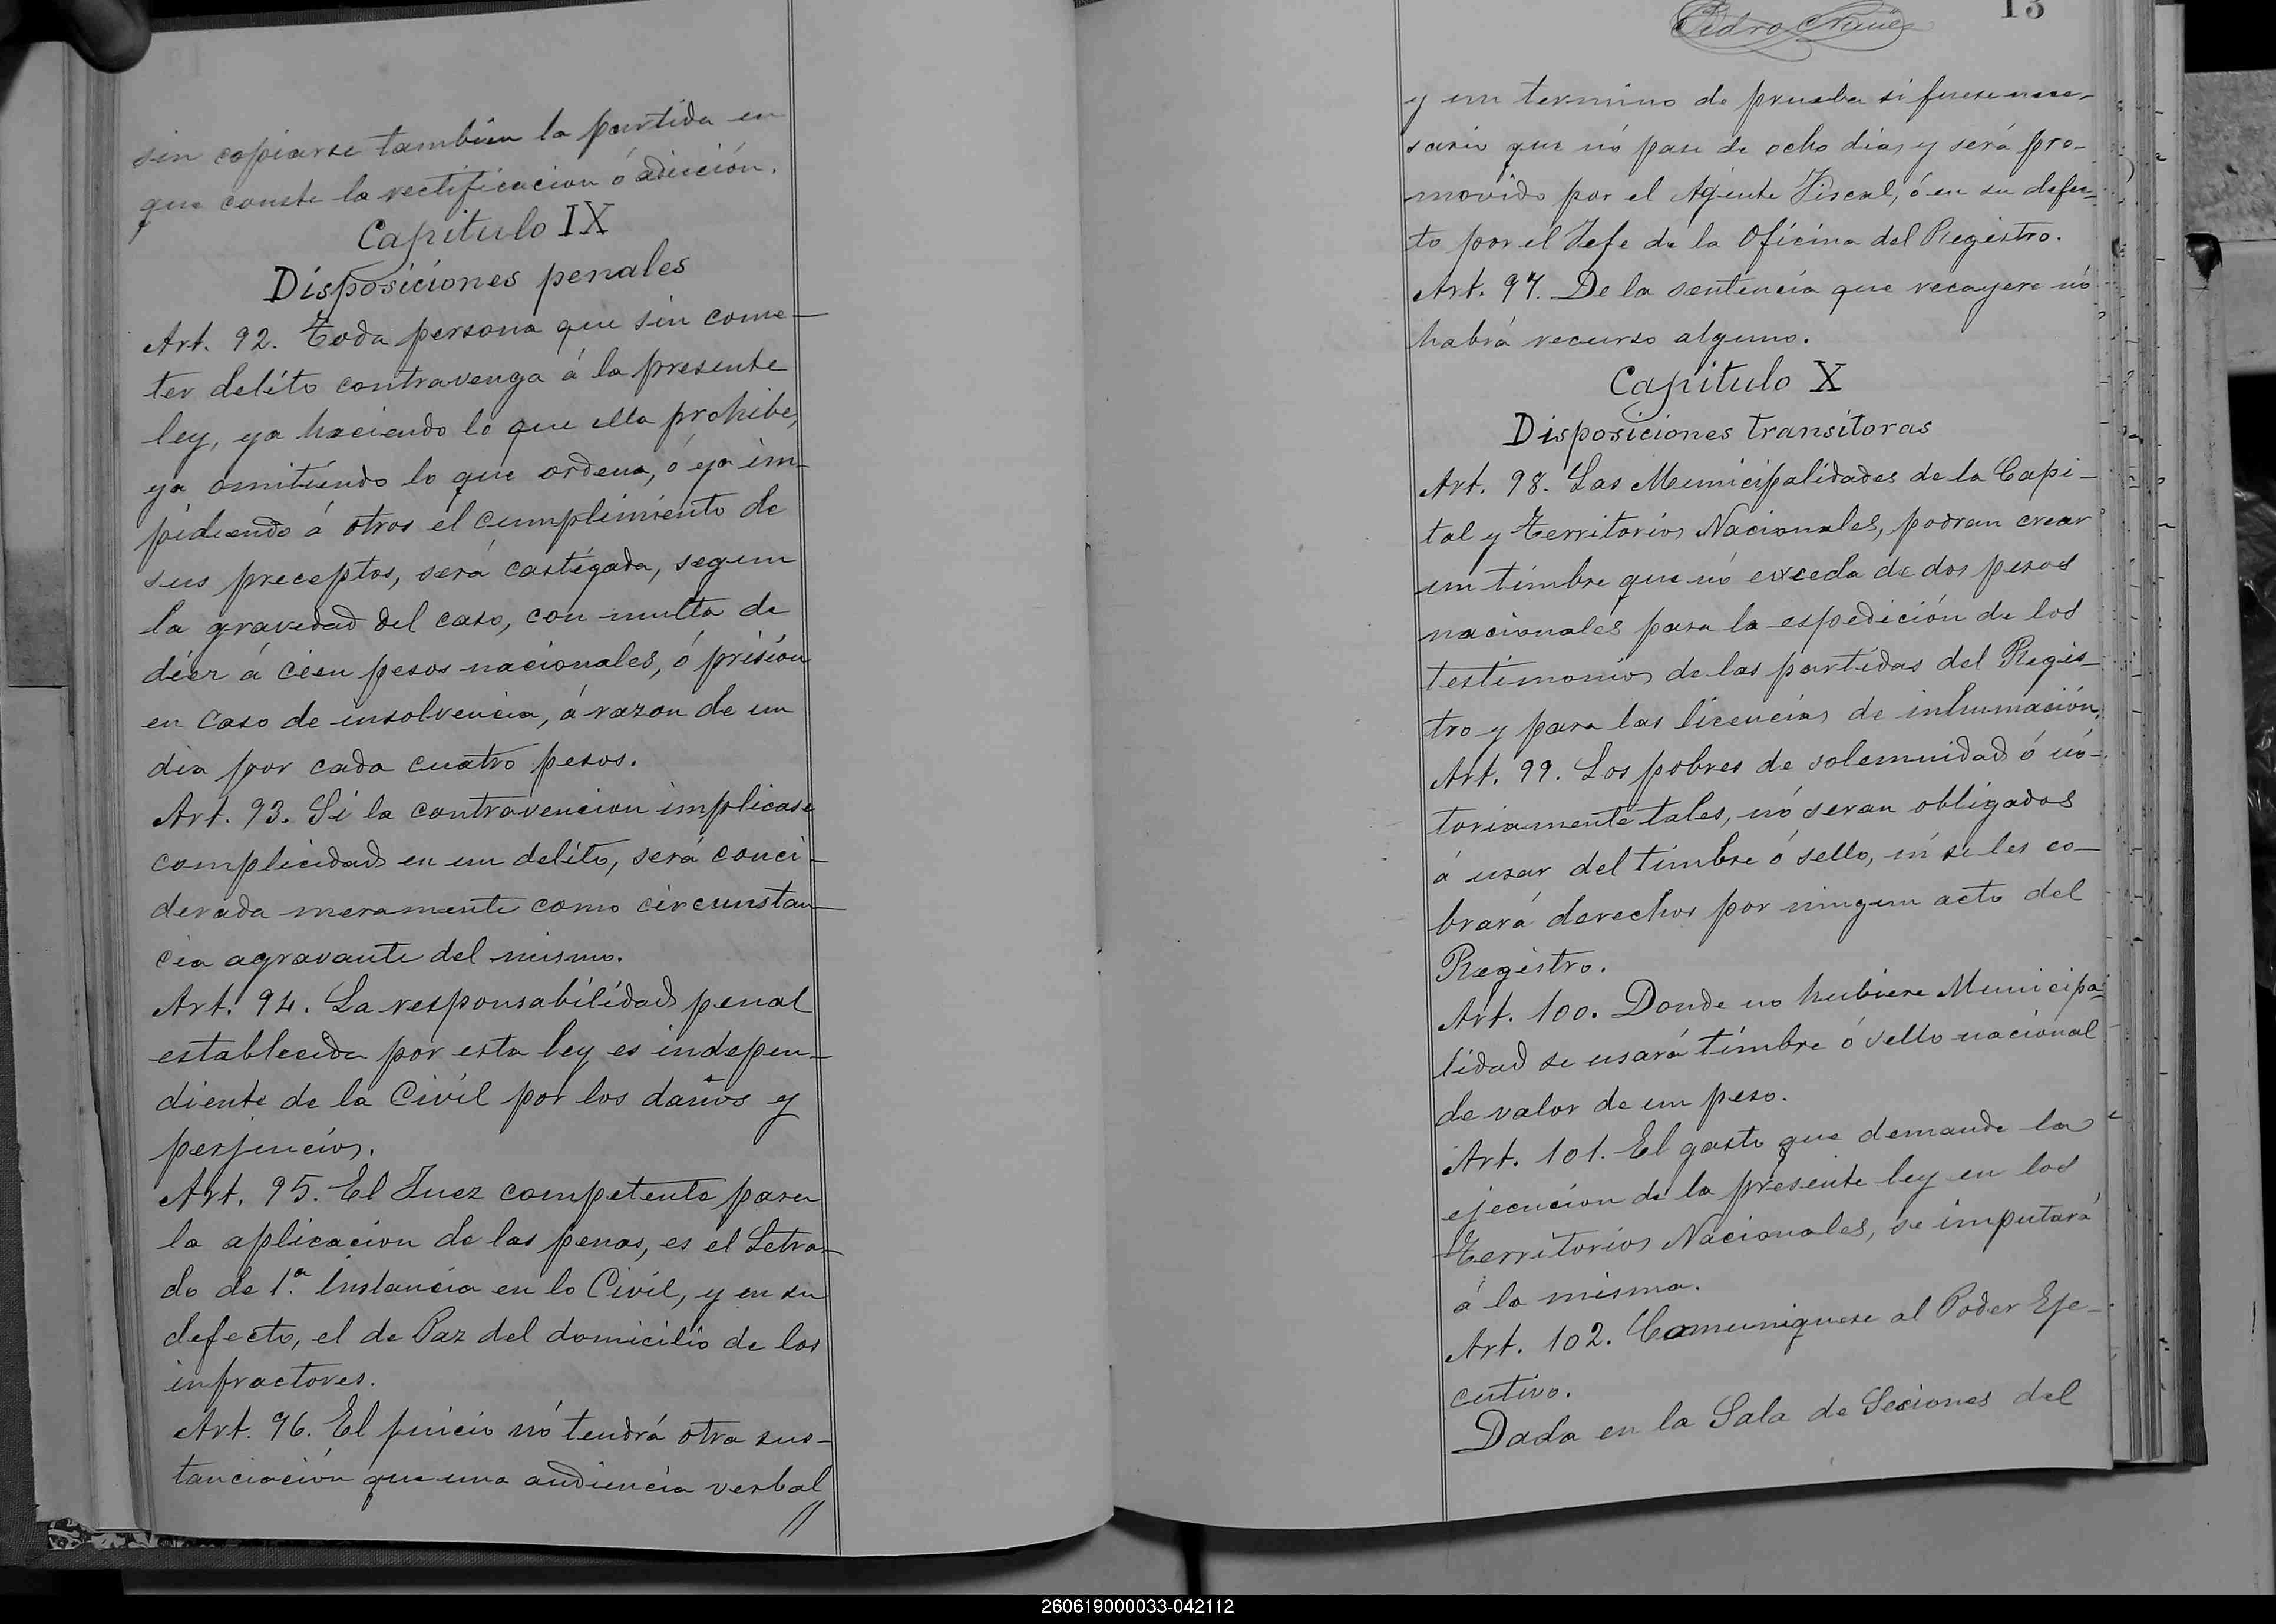 sin copiarse tambien la partida en
que conste la rectificacion ó adicción.
Capitulo IX
Disposiciones penales
Art. 92. Toda persona que sin come-
ter delito contravenga á la presente
ley, ya haciendo lo que ella prohibe,
ya omitiendo lo que ordena, ó ya im-
pidiendo á otros el cumplimiento de
sus preceptos, será castigada, segun
la gravedad del caso, con multa de
diez á cien pesos nacionales, ó prisión
en caso de insolvencia, á razon de un
dia por cada cuatro pesos.
Art. 93. Si la contravencion implicase
complicidad en un delito, será conci-
derada meramente como circunstan-
cia agravante del mismo.
Art. 94. La responsabilidad penal
establecida por esta ley es indepen-
diente de la Civil por los daños y
perjuicios.
Art. 95. El Juez competente para
la aplicacion de las penas, es el Letra-
do de 1.ª Instancia en lo Civil, y en su
defecto, el de Paz del domicilio de los
infractores.
Art. 96. El juicio nó tendrá otra sus-
tanciación que una audiencia verbal
13
Pedro
y un termino de prueba si fuese nece-
sario que nó pase de ocho dias y será pro-
movido por el Agente Fiscal, ó en su defec-
to por el Jefe de la Oficina del Registro.
Art. 97. De la sentencia que recayere nó
habrá recurso alguno.
Capitulo X
Disposiciones transitoras
Art. 98. Las Municipalidades de la Capi-
tal y Territorios Nacionales, podran crear
un timbre que nó exceda de dos pesos
nacionales para la espedición de los
testimonios de las partidas del Regis-
tro y para las licencias de inhumación.
Art. 99. Los pobres de solemnidad ó nó-
toriamente tales, nó seran obligados
á usar del timbre ó sello, ni se les co-
brará derechos por ningun acto del
Registro.
Art. 100. Donde no hubiere Municipa-
lidad se usará timbre ó sello nacional
de valor de un peso.
Art. 101. El gasto que demande la
ejecucion de la presente ley en los
Territorios Nacionales, se imputará
á la misma.
Art. 102. Comuniquese al Poder Eje-
cutivo.
Dada en la Sala de Sesiones del
260619000033-042112